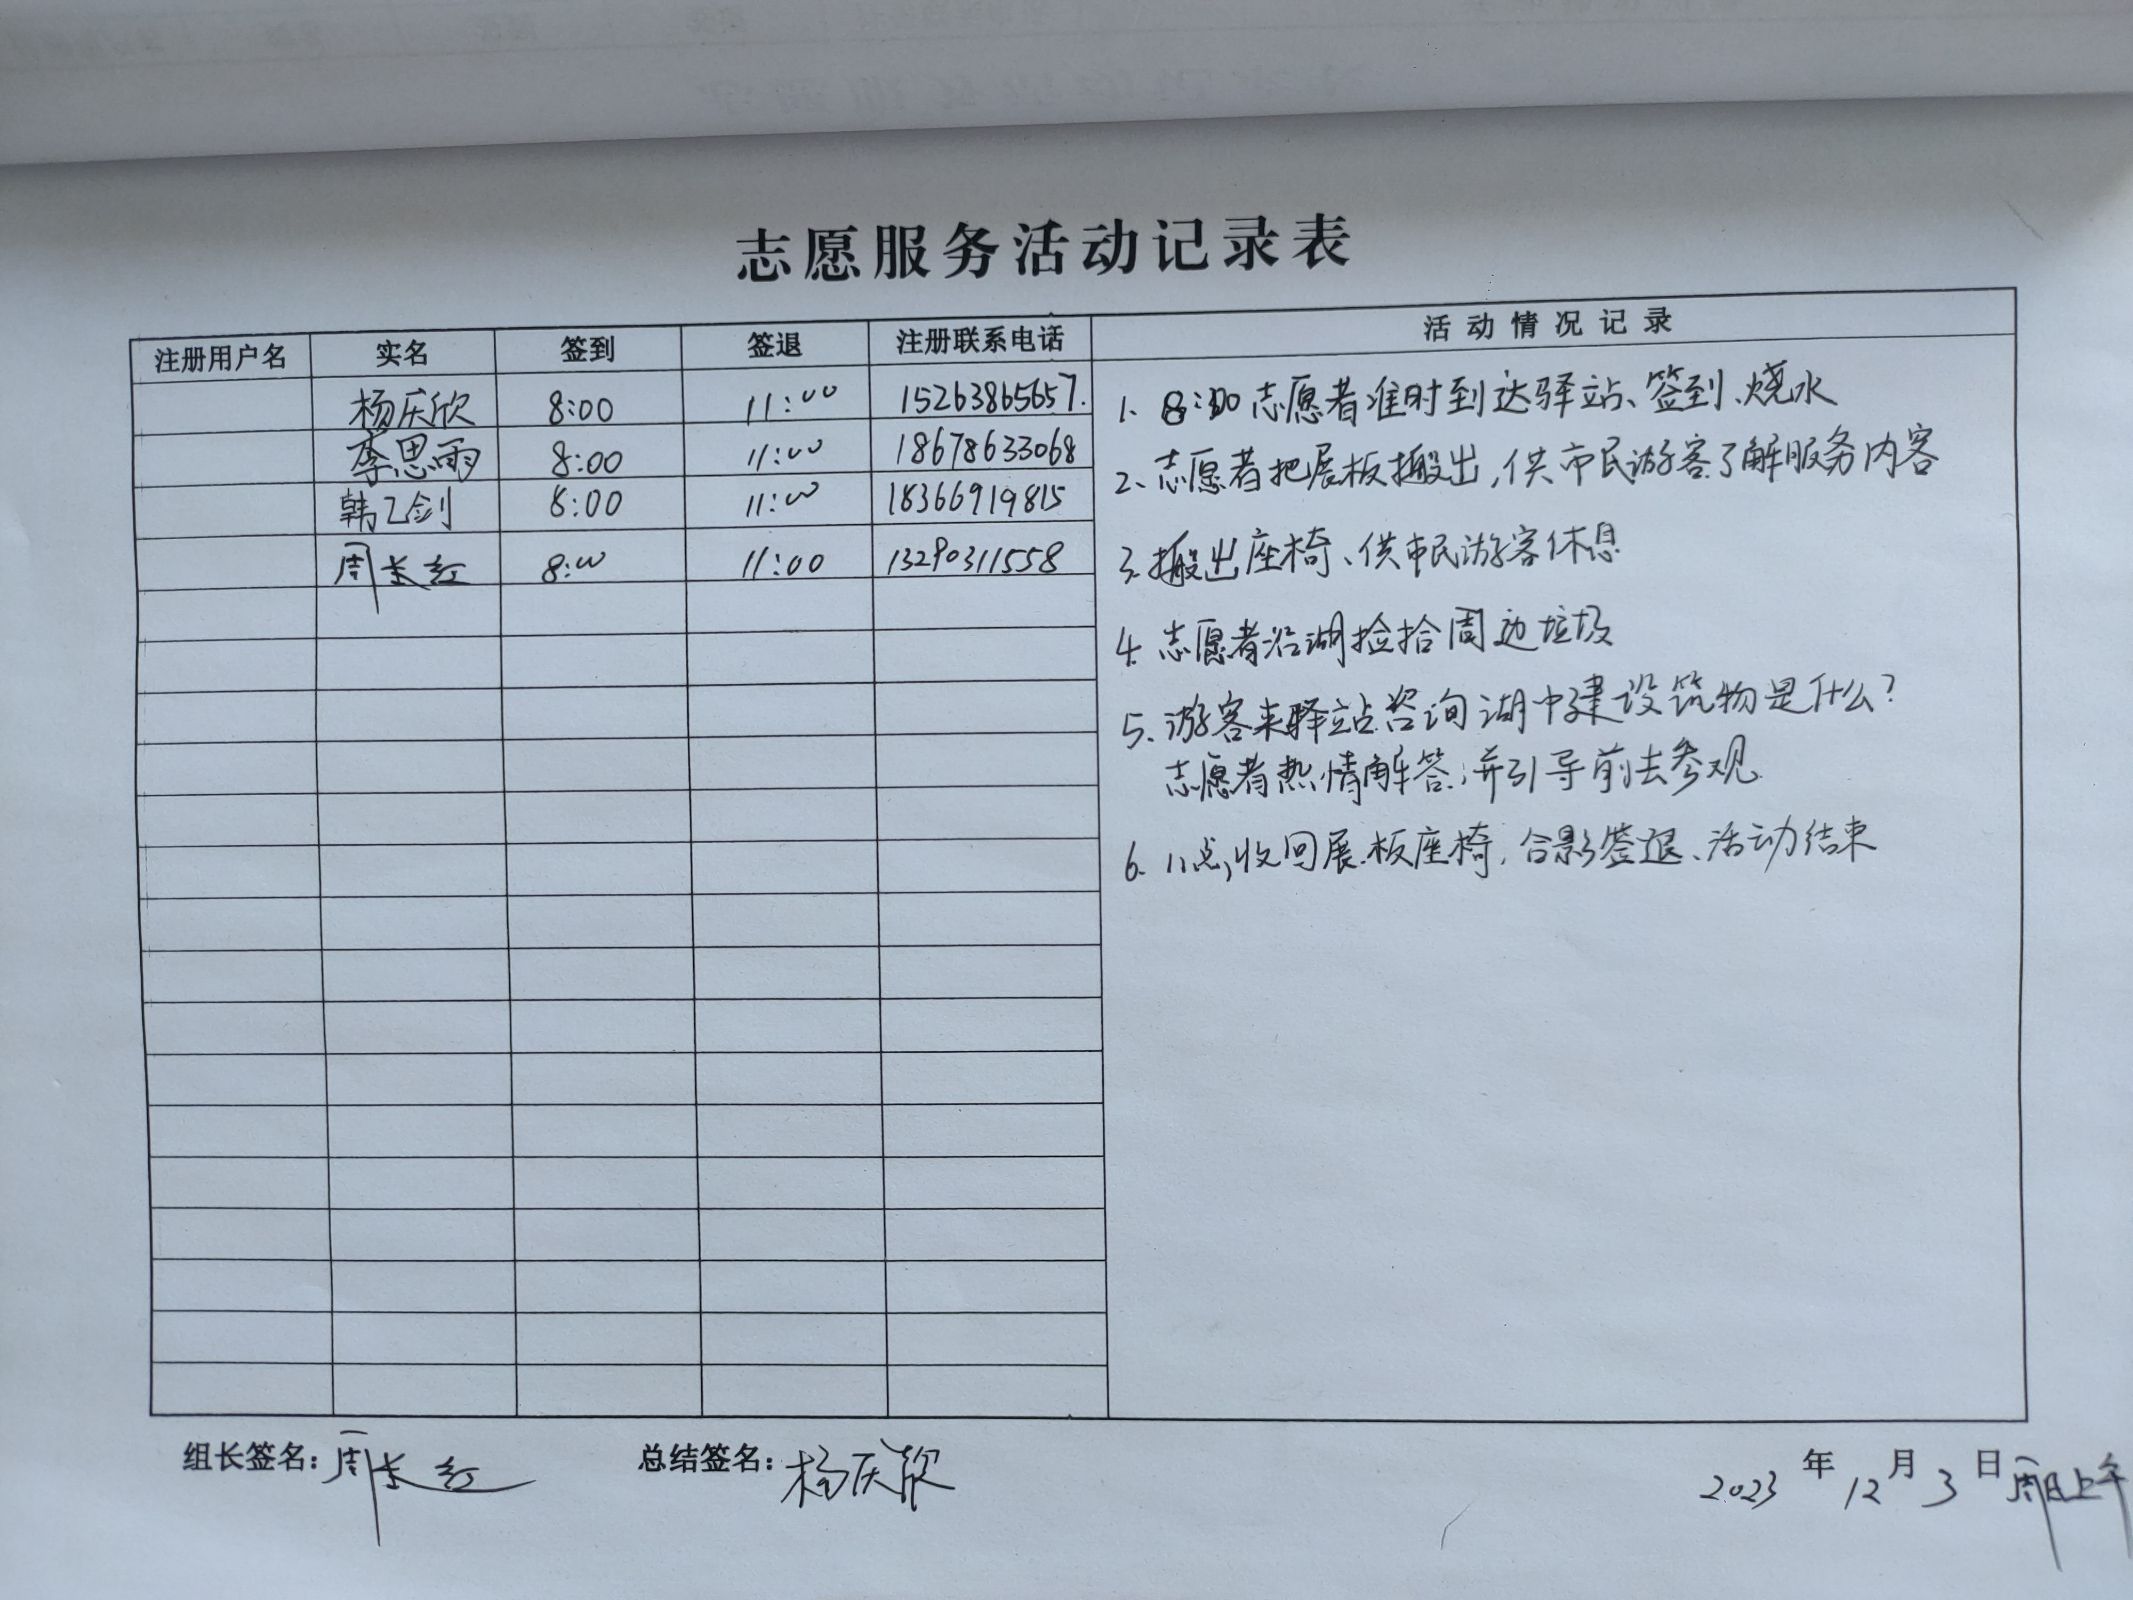 志愿服务活动记录表
注册用户名 实名 签到 签退 注册联系电话 活动情况记录
杨庆欣 8:00 11:00 15263865657.
李思雨 8:00 11:00 18678633068
韩乙剑 8:00 11:00 18366919815
周长红 8:00 11:00 13290311558
1. 8:00志愿者准时到达驿站、签到、烧水
2、志愿者把展板搬出,供市民游客了解服务内容
3.搬出座椅、供市民游客休息
4.志愿者沿湖捡拾周边垃圾
5.游客来驿站咨询湖中建设筑物是什么?
志愿者热情解答,并引导前去参观.
6. 11点,收回展板座椅,合影签退、活动结束
组长签名:周长红 总结签名:杨庆欣 2023年12月3日周日上午